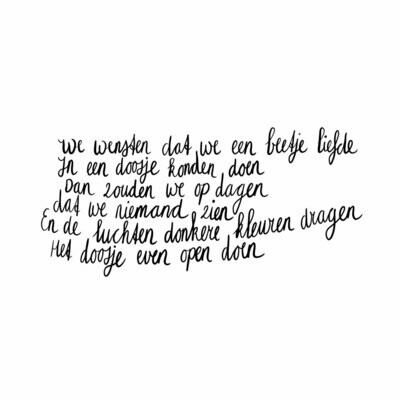 We wensten dat we een beetje liefde
In een doosje konden doen
Dan zouden we op dagen
dat we niemand zien
En de luchten donkere kleuren dragen
Het doosje even open doen